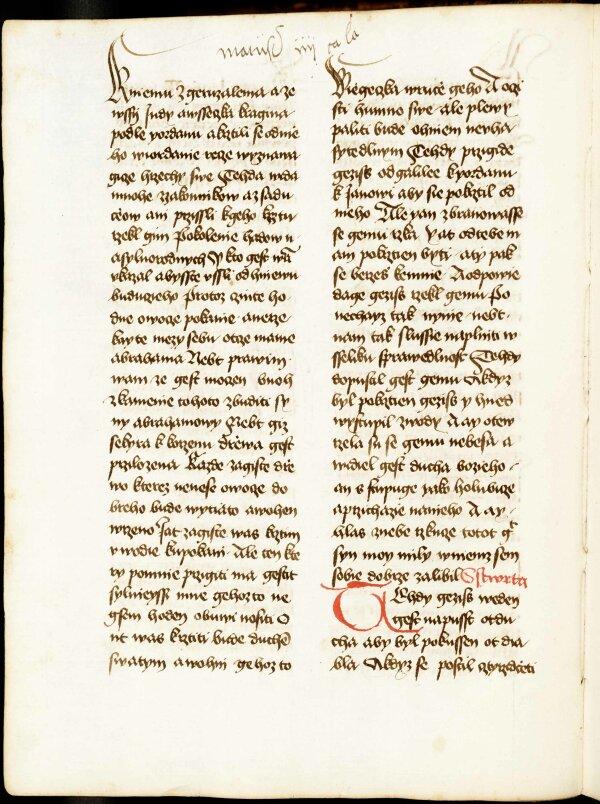 K niemu z geruzalema a ze
wssy Judy a wssecka kragina
podle yordanu a krztili se od nie
ho w iordanie rzece wyznawa
gicze hrzechy swe Tehda uzrza
mnohe z zakonnikow a z sadu
ceow ani przissli k geho krztu
rzekl gim Pokolenie hadow n
a sylnorodnych y kto gest wā
ukazal abysste ussli od hniewu
buduczieho Protoz czinte ho
dne owocze pokanie a nerze
kayte mezy sebu otcze mame
abrahama Nebt prawim
wam ze gest mozen buoh
z kamenie tohoto zbuditi sy
ny abrahamowy Nebt giz
sekyra k korzenu drzewa gest
przilozena Kazde zagiste drze
wo kterez nenese owocze do
breho bude wytiato a w ohen
wrzeno Jat zagiste was krztim
w wodie ku pokani Ale ten kte
ry po mnie przigiti ma gestit
sylnieyssie mne gehozto ne
gsem hoden obuwi nositi O
nt was krztiti bude duchē
swatym a ohni gehozto
Wiegeczka w rucze geho A oczi
sti humno swe ale plewy
paliti bude ohniem neuha
sytedlnym Tehdy przigide
gezis od galilee k yordanu
k Janowi aby sie pokrztil od
nieho Ale yan zbranowasse
se gemu rzka Yat od tebe m
am pokrztien byti a ty pak
se berzes ke mnie A odpowie
dage gezis rzekl gemu Po
nechayz tak nynie nebt
nam tak slussie naplniti w
sselku sprawedlnost Tehdy
dopustil gest gemu A kdyz
byl pokrztien gezis y hned
wystupil z wody A ay otew
rzela su se gemu nebesa a
widiel gest ducha bozieho
an s stupuge yako holubicze
a przichazie na nieho A ay
hlas z nebe rzkucze totot gt
syn moy mily w niemz sem
sobie dobrze zalibil Sstwrta
TEhdy gezis weden
gest na pusst ot du
cha aby byl pokussen ot dia
bla A kdyz se postil cztyrzdceti